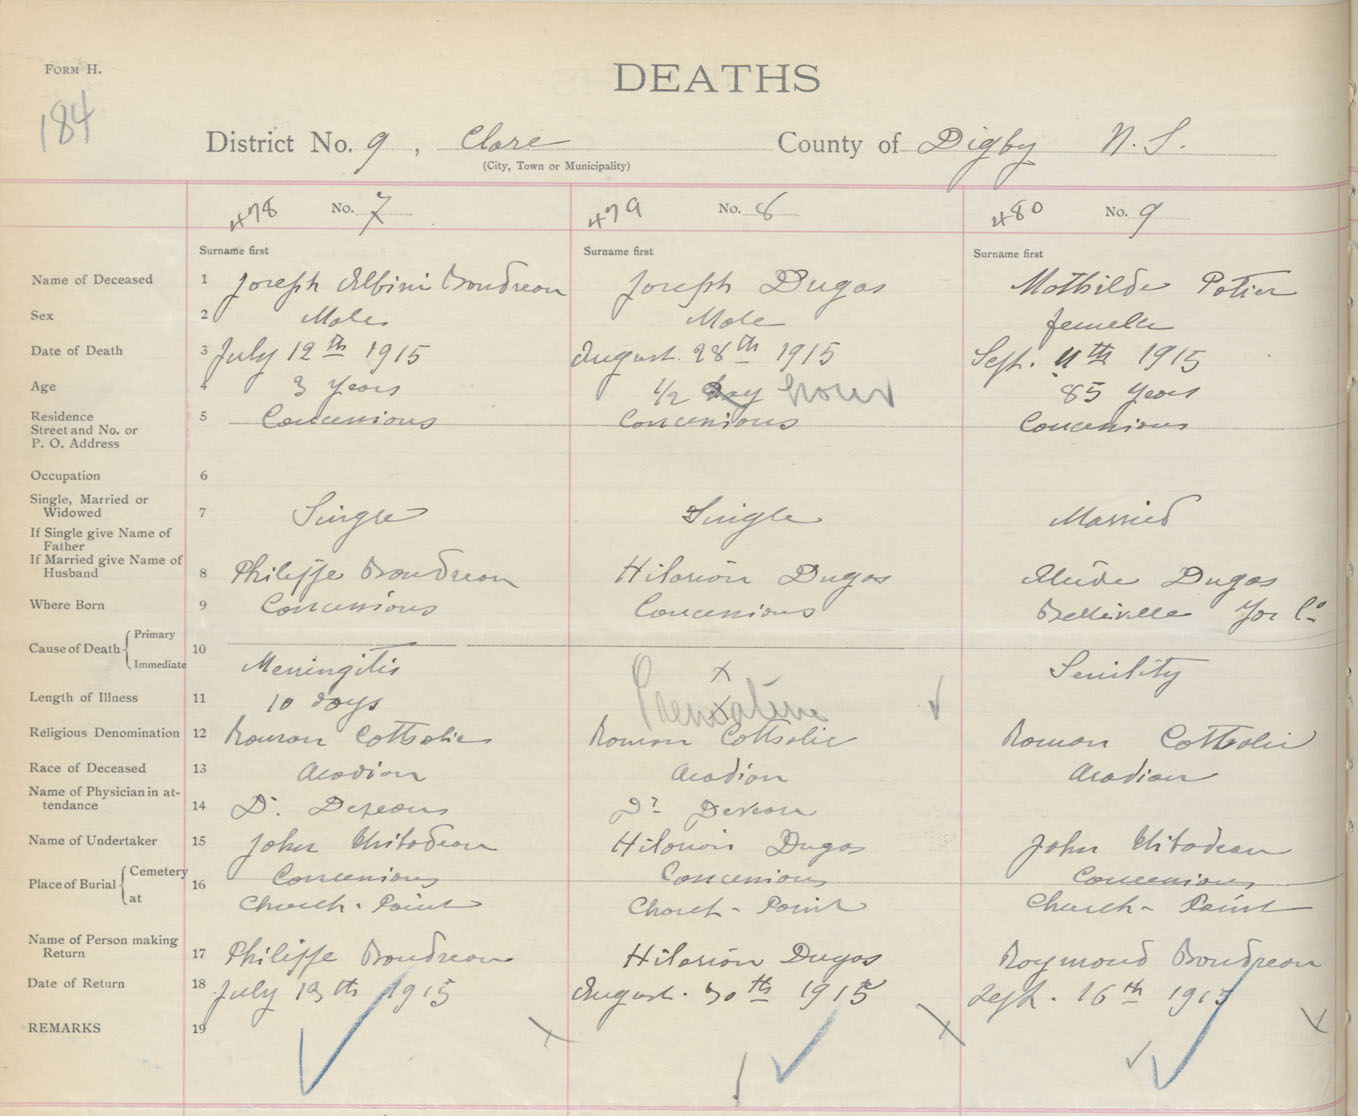 FORM H.
184
DEATHS
District No. 9, Clare County of Digby N.S.
(City, Town or Municipality)
478 No. 7 479 No. 8 480 No. 9
Surname first Surname first Surname first
Name of Deceased 1 Joseph Albini Boudreau Joseph Dugas Mathilde Potier
Sex 2 Male Male femelle
Date of Death 3 July 12th 1915 August 28th 1915 Sept. 11th 1915
Age 4 3 Years 1/2 Day hour 85 Years
Residence
Street and No. or
P. O. Address 5 Concenions Concenions Concenions
Occupation 6
Single, Married or
Widowed 7 Single Single Married
If Single give Name of
Father
If Married give Name of
Husband 8 Philippe Boudreau Hilarion Dugas Dugas
Where Born 9 Concenions Concenions Belleville Yar Co
Cause of Death { Primary 10
Immediate Meningitis Premature Senility
Length of Illness 11 10 days
Religious Denomination 12 Roman Catholic Roman Catholic Roman Catholic
Race of Deceased 13 Acadian Acadian Acadian
Name of Physician in at-
tendance 14 D. Dr
Name of Undertaker 15 John Thibodeau Hilarion Dugas John Thibodeau
Place of Burial { Cemetery 16 Concenions Concenions Concenions
at Church-Point Church-Point Church-Point
Name of Person making
Return 17 Philippe Boudreau Hilarion Dugas Raymond Boudreau
Date of Return 18 July 13th 1915 August. 30th 1915 Sept. 16th 1915
REMARKS 19